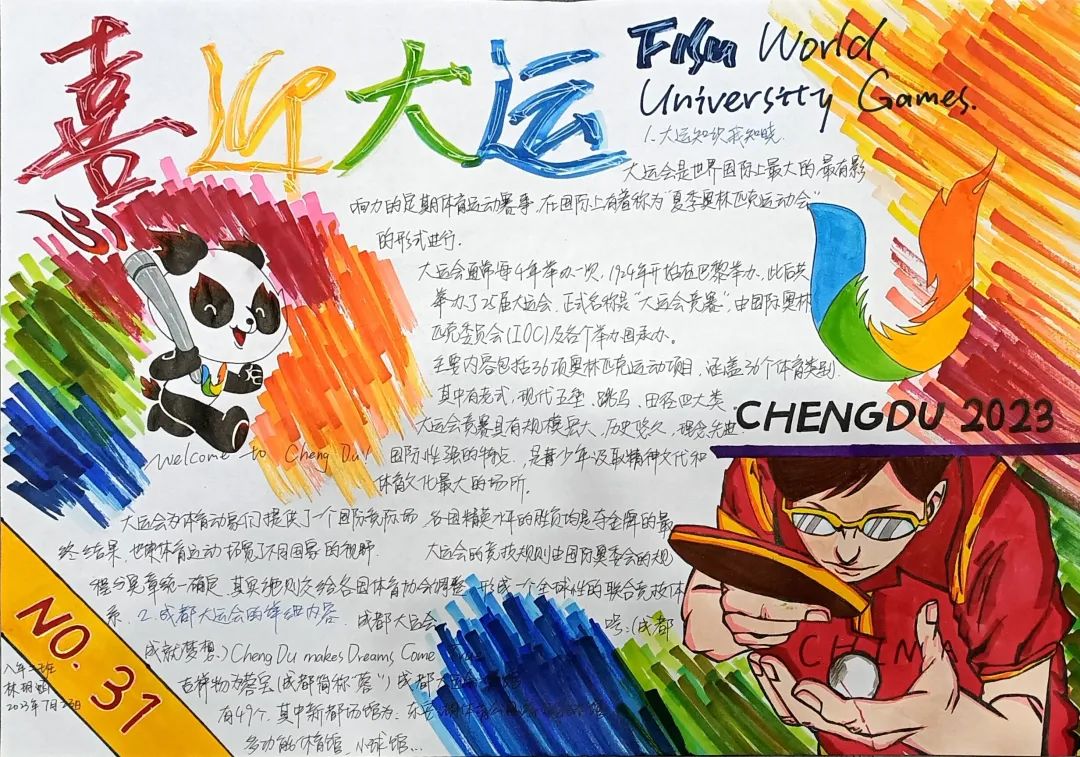 喜迎大运
FISU World
University Games.
1.大运知识我知晓.
大运会是世界国际上最大的最有影
响力的定期体育运动赛事.在国际上有着称为“夏季奥林匹克运动会”
的形式进行.
大运会通常每4年举办一次,1924年开始在巴黎举办.此后共
举办了25届大运会.正式名称是“大运会竞赛”.由国际奥林
匹克委员会(IOC)及各个举办国承办。
主要内容包括36项奥林匹克运动项目,涵盖36个体育类别.
其中有 现代五 跳马、田径四大类.
CHENGDU 2023
大运会竞赛具有规模 大,历史悠久,理念先进
Welcome to Cheng Du!
国际性强的特点.是青少年汲取精神文化和
体育文化最大的场所.
大运会为体育动 们提供了一个国际 场 各国精英水平的 均是夺金牌的最
终结果.也 体育运动 了不同国家的视野.
大运会的竞技规则由国际奥委会的规
程 章统一确定.其 细则交给各国体育协会调整.形成一个全球性的联合竞技体
系.2.成都大运会的详细内容.成都大运会
(成都
成就梦想.)Cheng Du makes Dreams Come
吉祥物为蓉宝(成都简称“蓉”)成都大运会
有49个.其中新都场馆为:东
多功能体育馆、小球馆...
CHINA
NO.31
八年二班
林
2023年7月 日